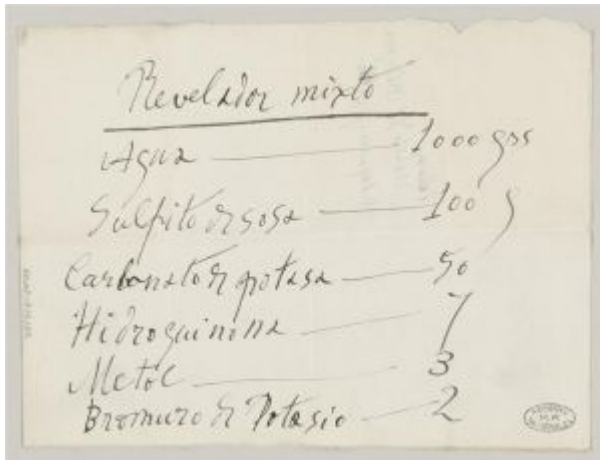 Revelador mixto
Agua — 1000 grs
Sulfito de sosa — 100 g
Carbonato de potasa — 50
Hidroquinona — 7
Metol — 3
Bromuro de Potasio — 2